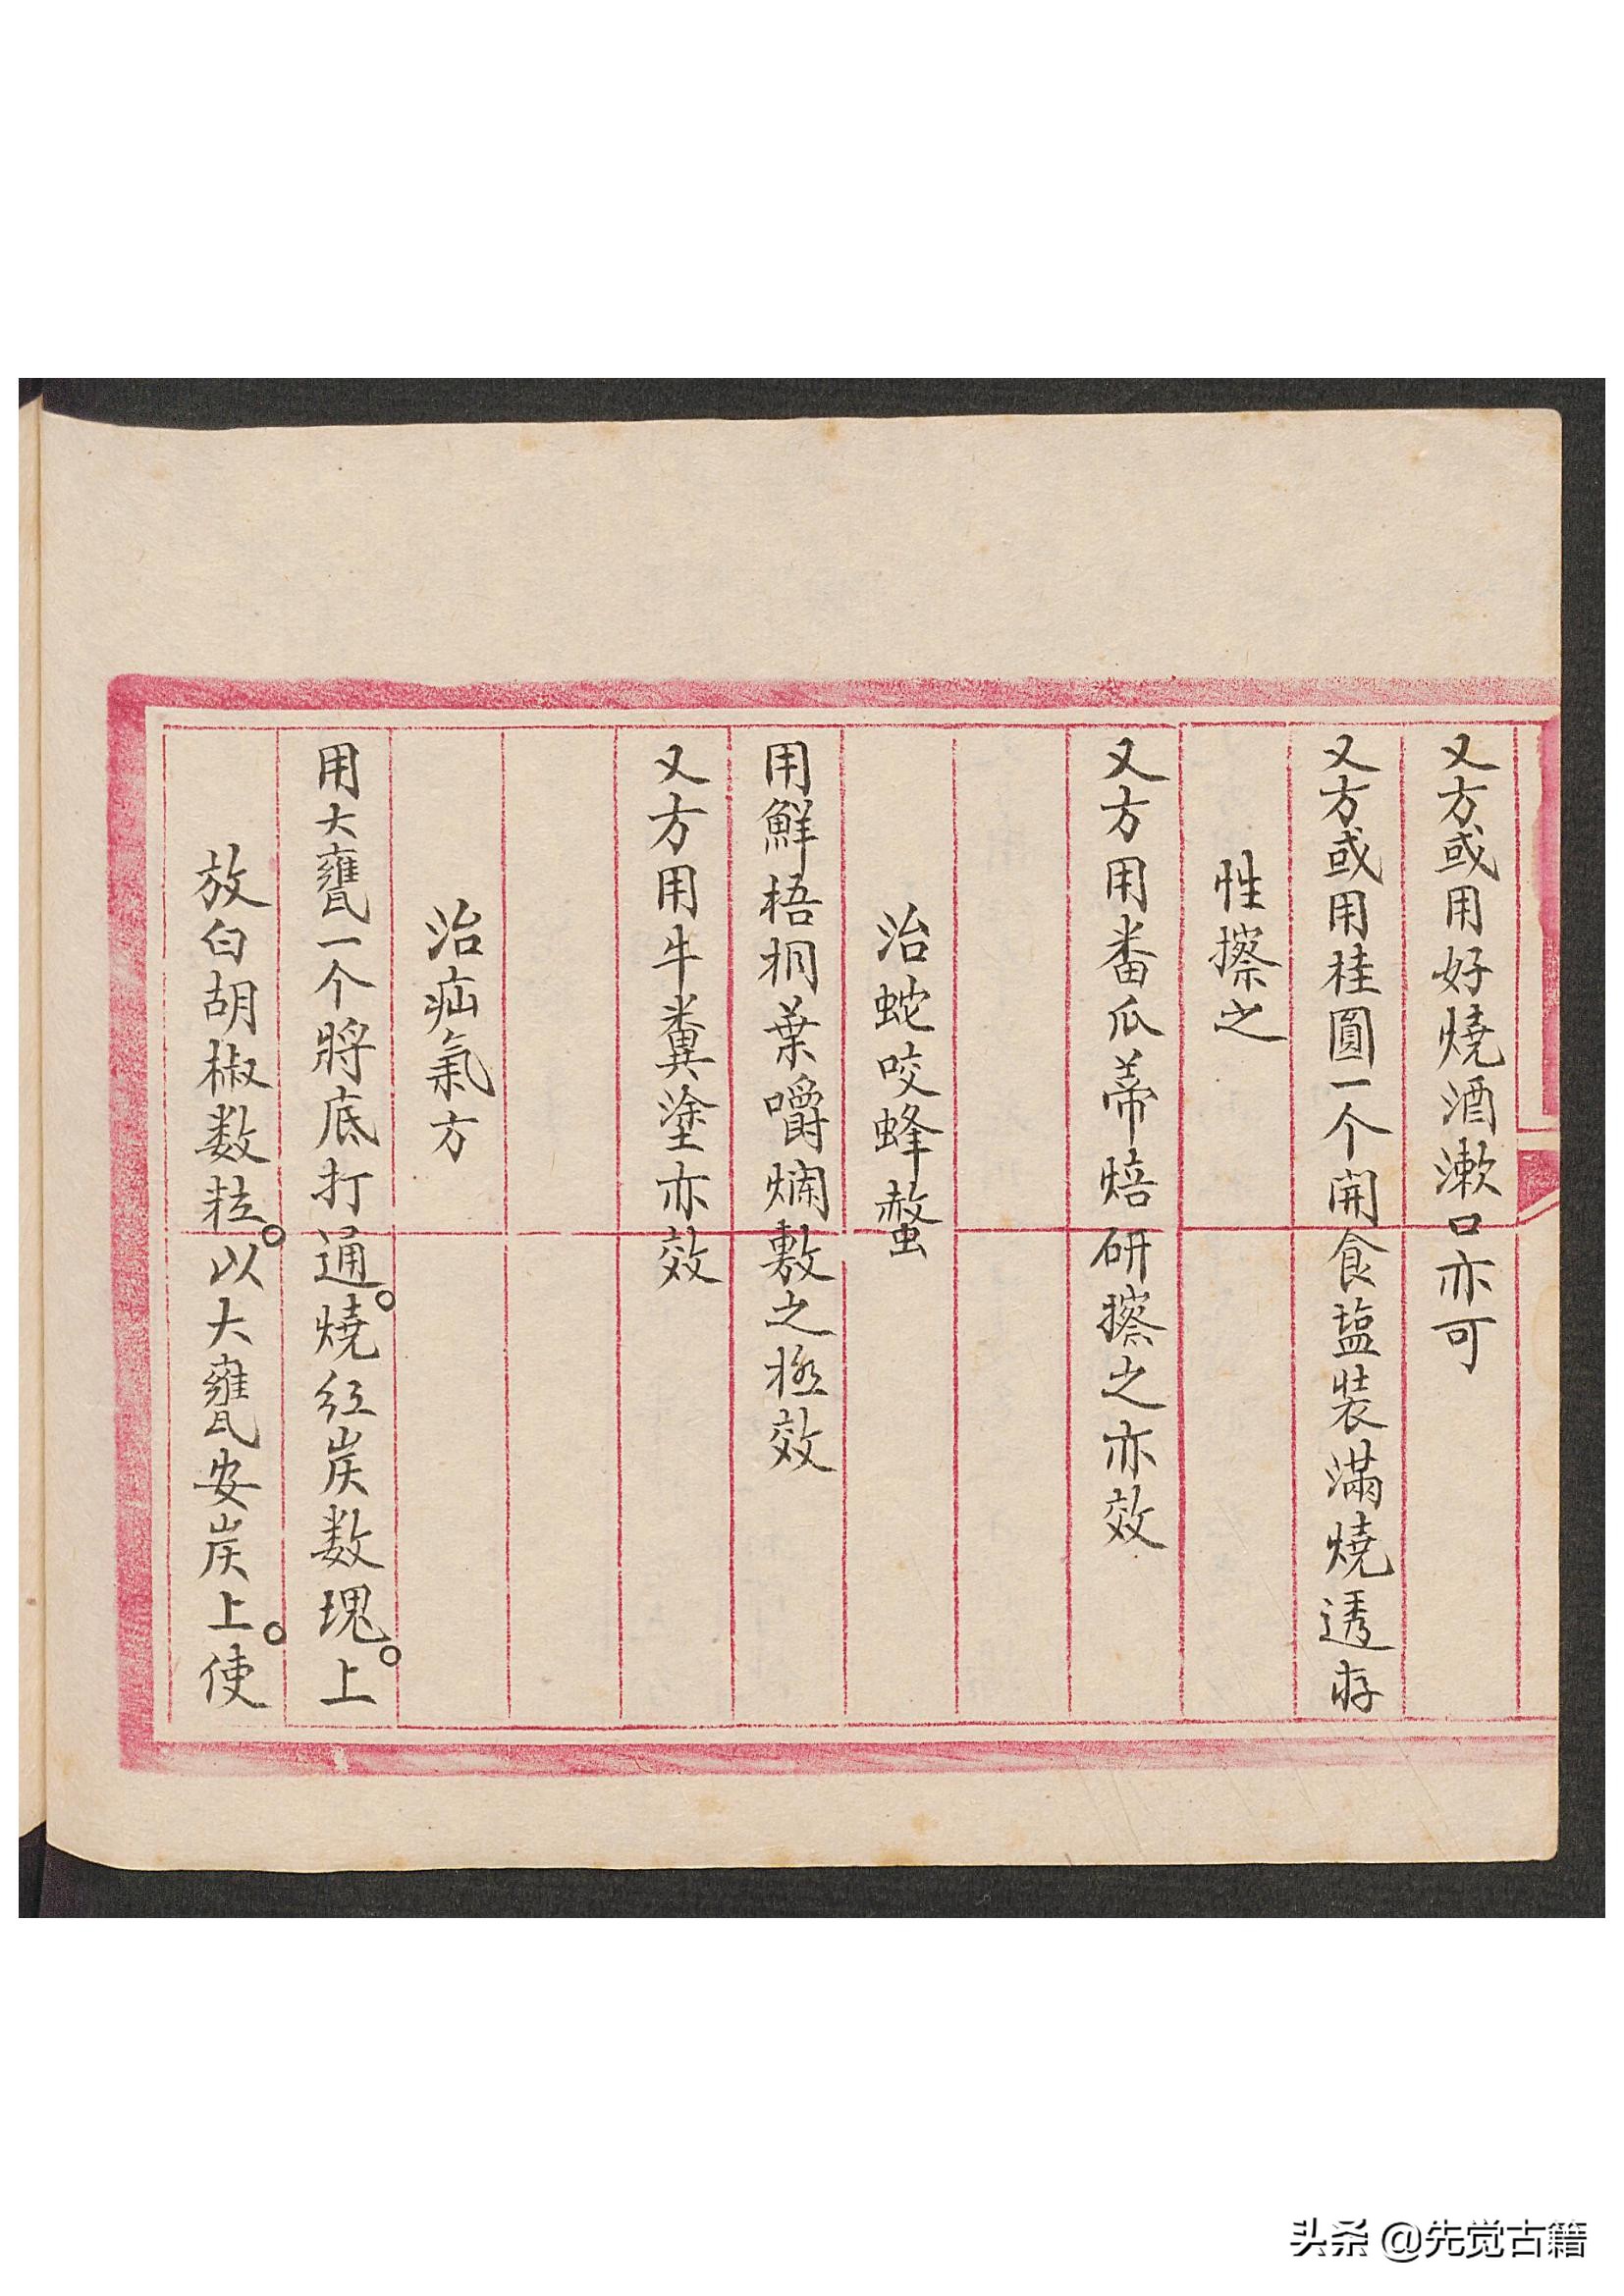 又方或用好燒酒漱口亦可
又方或用桂圓一个開食塩装滿燒透存
性擦之
又方用番瓜蒂焙研擦之亦效
治蛇咬蜂螫
用鮮梧桐葉嚼爛敷之極效
又方用牛糞塗亦效
治疝氣方
用大甕一个將底打通。燒红炭数塊。上
放白胡椒数粒。以大甕安炭上。使
头条 @先觉古籍